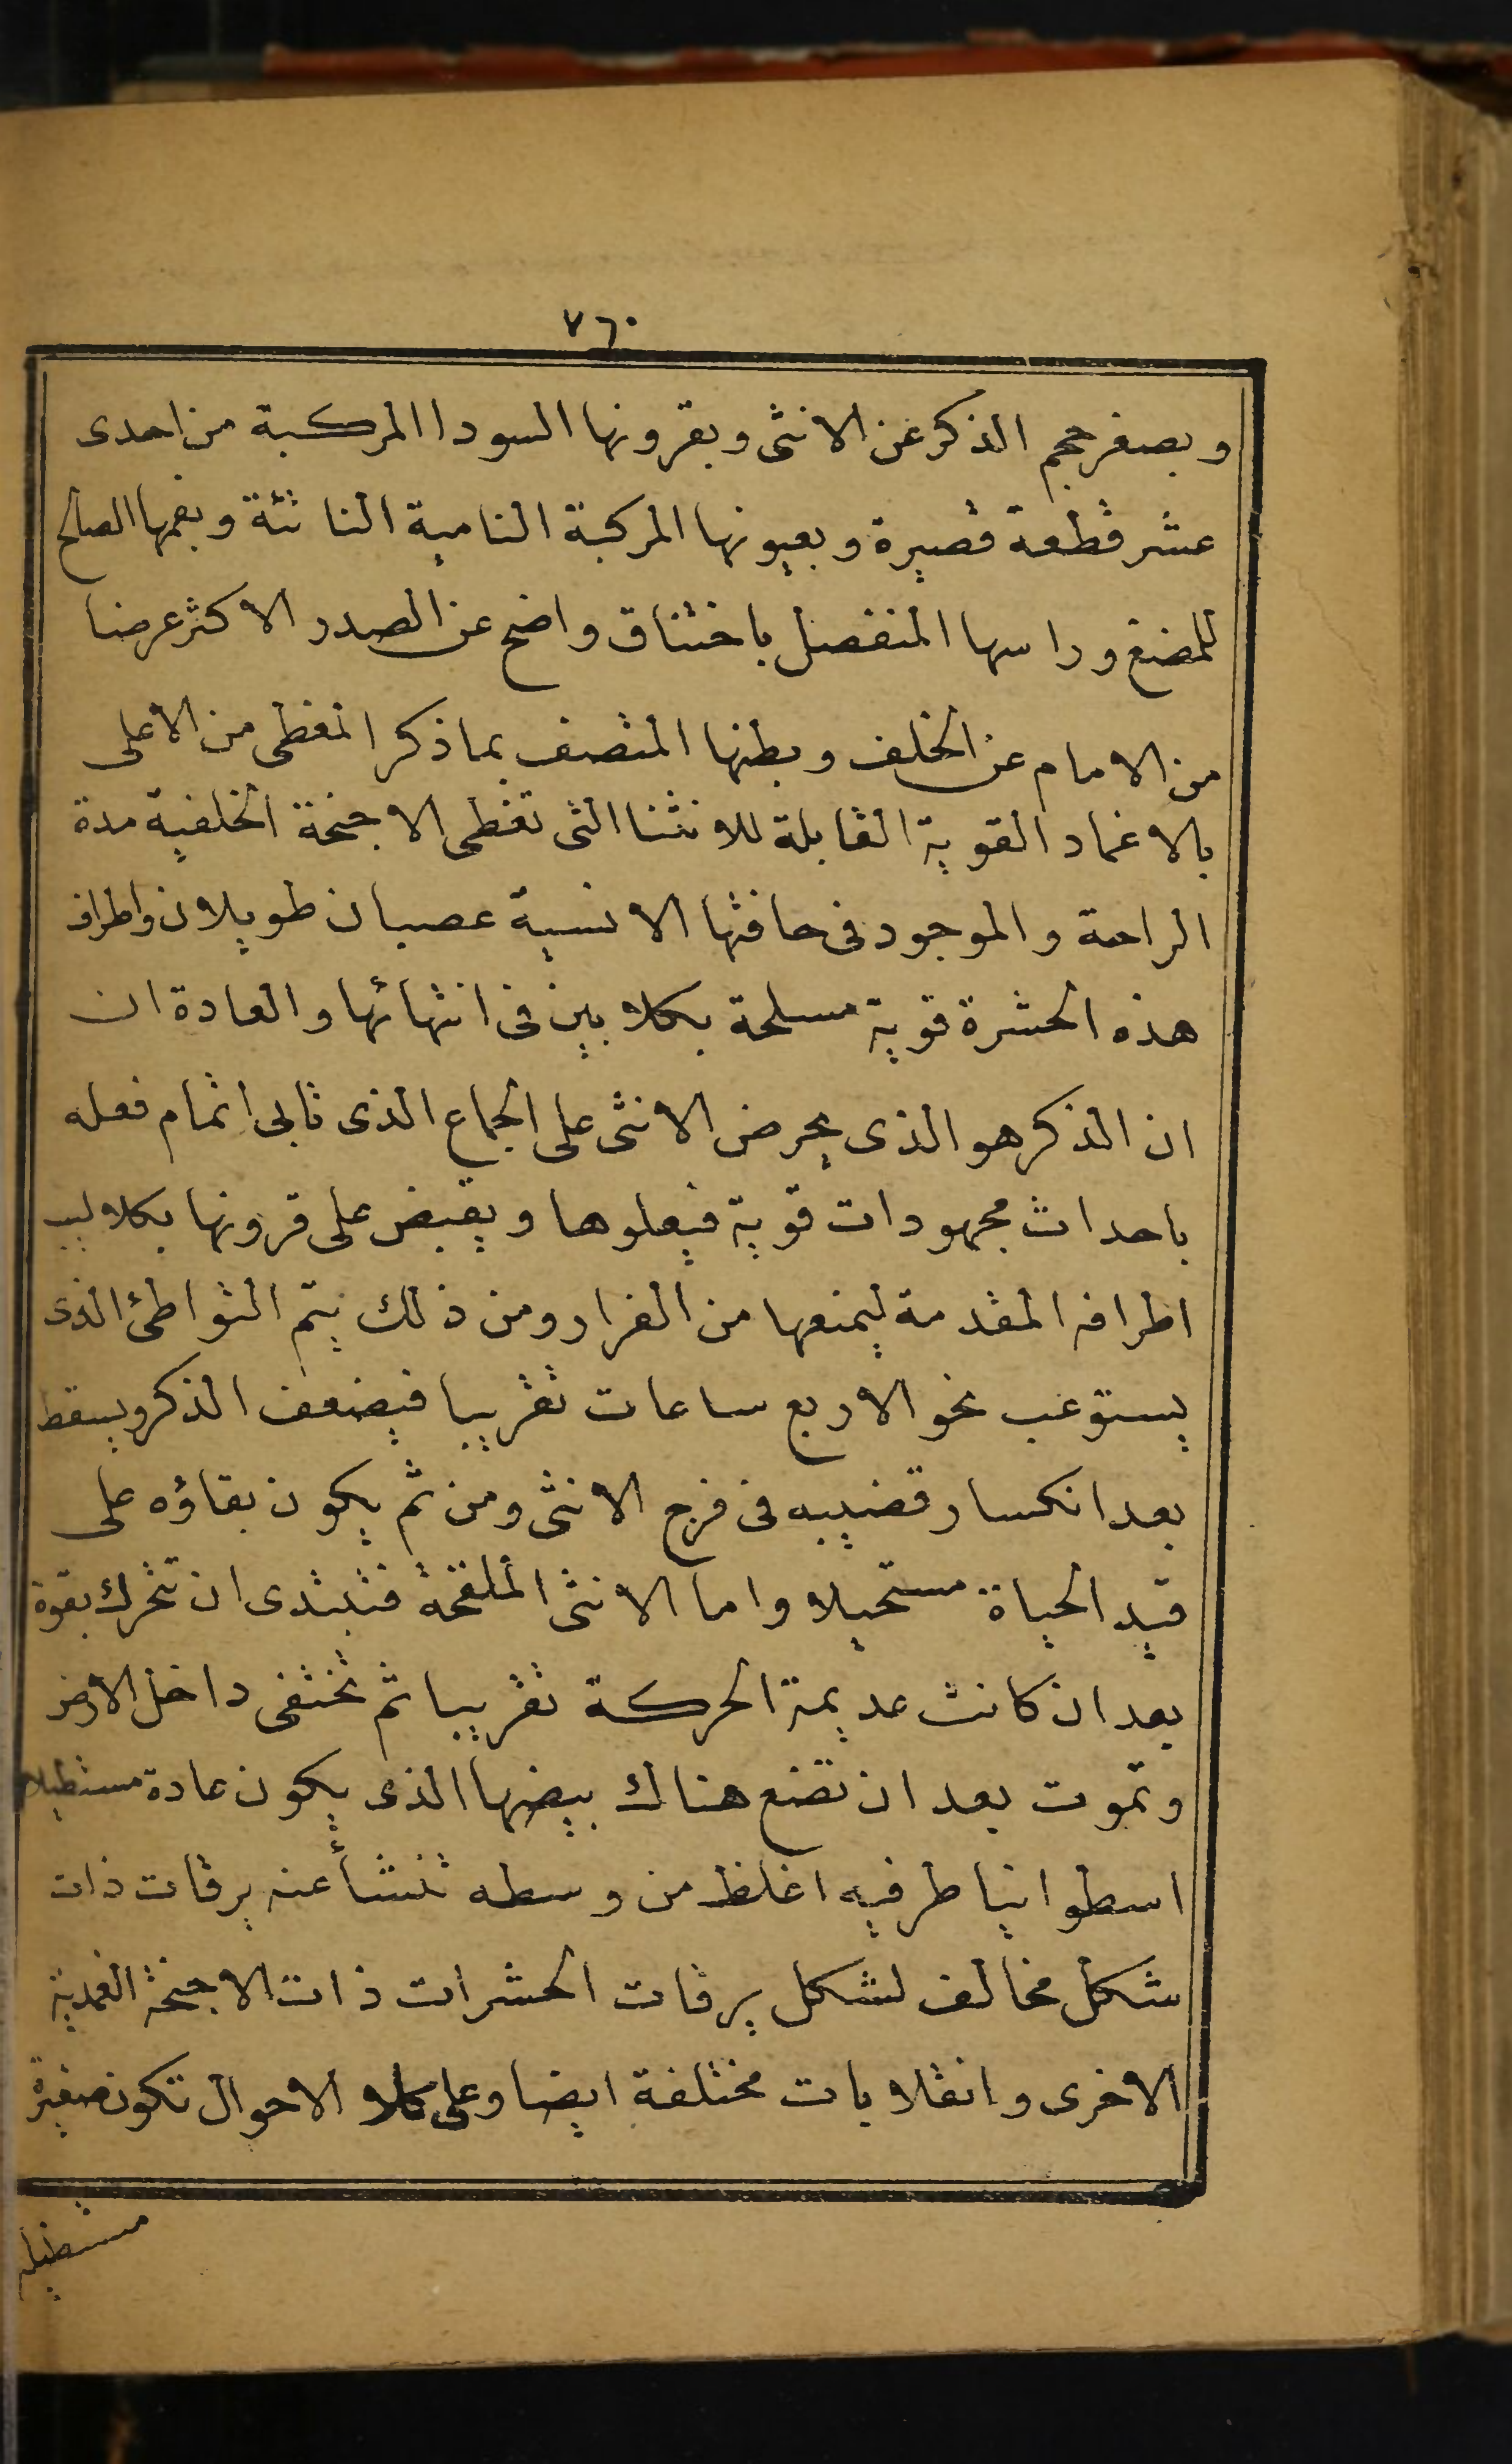 ٧٦٠
وبصغر حجم الذكر عن الانثى وبقرونها السودا المركبة من احدى
عشر قطعة قصيرة وبعيونها المركبة النامية الناتئة وبفمها الصالح
للمضغ وراسها المنفصل باختناق واضح عن الصدر الاكثر عرضا
من الامام عن الخلف وبطنها المتصف بما ذكر المغطى من الاعلى
بالاغماد القوية القابلة للانثنا التى تغطى الاجنحة الخلفية مدة
الراحة والموجود فى حافتها الانسية عصبان طويلان واطراف
هذه الحشرة قوية مسلحة بكلابين فى انتهائها والعادة ان
ان الذكر هو الذى يحرض الانثى على الجماع الذى تابى اتمام فعله
باحداث مجهودات قوية فيعلوها ويقبض على قرونها بكلاليب
اطرافه المقدمة ليمنعها من الفرار ومن ذلك يتم التواطئ الذى
يستوعب نحو الاربع ساعات تقريبا فيضعف الذكر ويسقط
بعد انكسار قضيبه فى فرج الانثى ومن ثم يكون بقاؤه على
قيد الحياة مستحيلا واما الانثى الملقحة فتبتدى ان تتحرك بقوة
بعد ان كانت عديمة الحركة تقريبا ثم تختفى داخل الارض
وتموت بعد ان تضع هناك بيضها الذى يكون عادة مستطيلا
اسطوانيا طرفيه اغلظ من وسطه تنشأ عنه يرقات ذات
شكل مخالف لشكل يرقات الحشرات ذات الاجنحة الغمدية
الاخرى وانقلابات مختلفة ايضا وعلى كلا الاحوال تكون صغيرة
مستطيلة